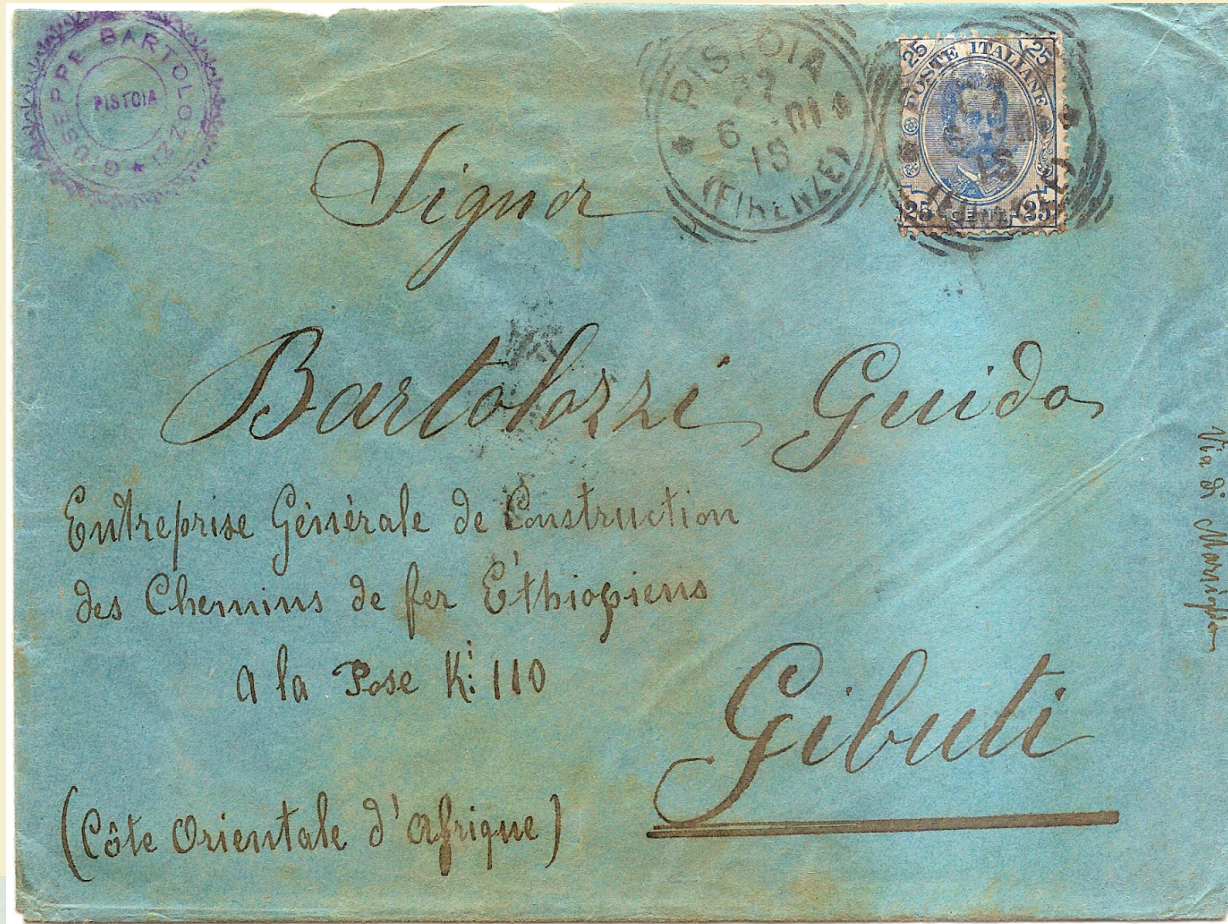 GIUSEPPE BARTOLOZZI
PISTOIA
PISTOIA
6
(FIRENZE)
25 POSTE ITALIANE 25
25 CENT. 25
Signor
Bartolozzi Guido
Entreprise Générale de Construction
des Chemins de fer Ethiopiens
a la Pose K: 110
Gibuti
(Côte Orientale d'Afrique)
Via di